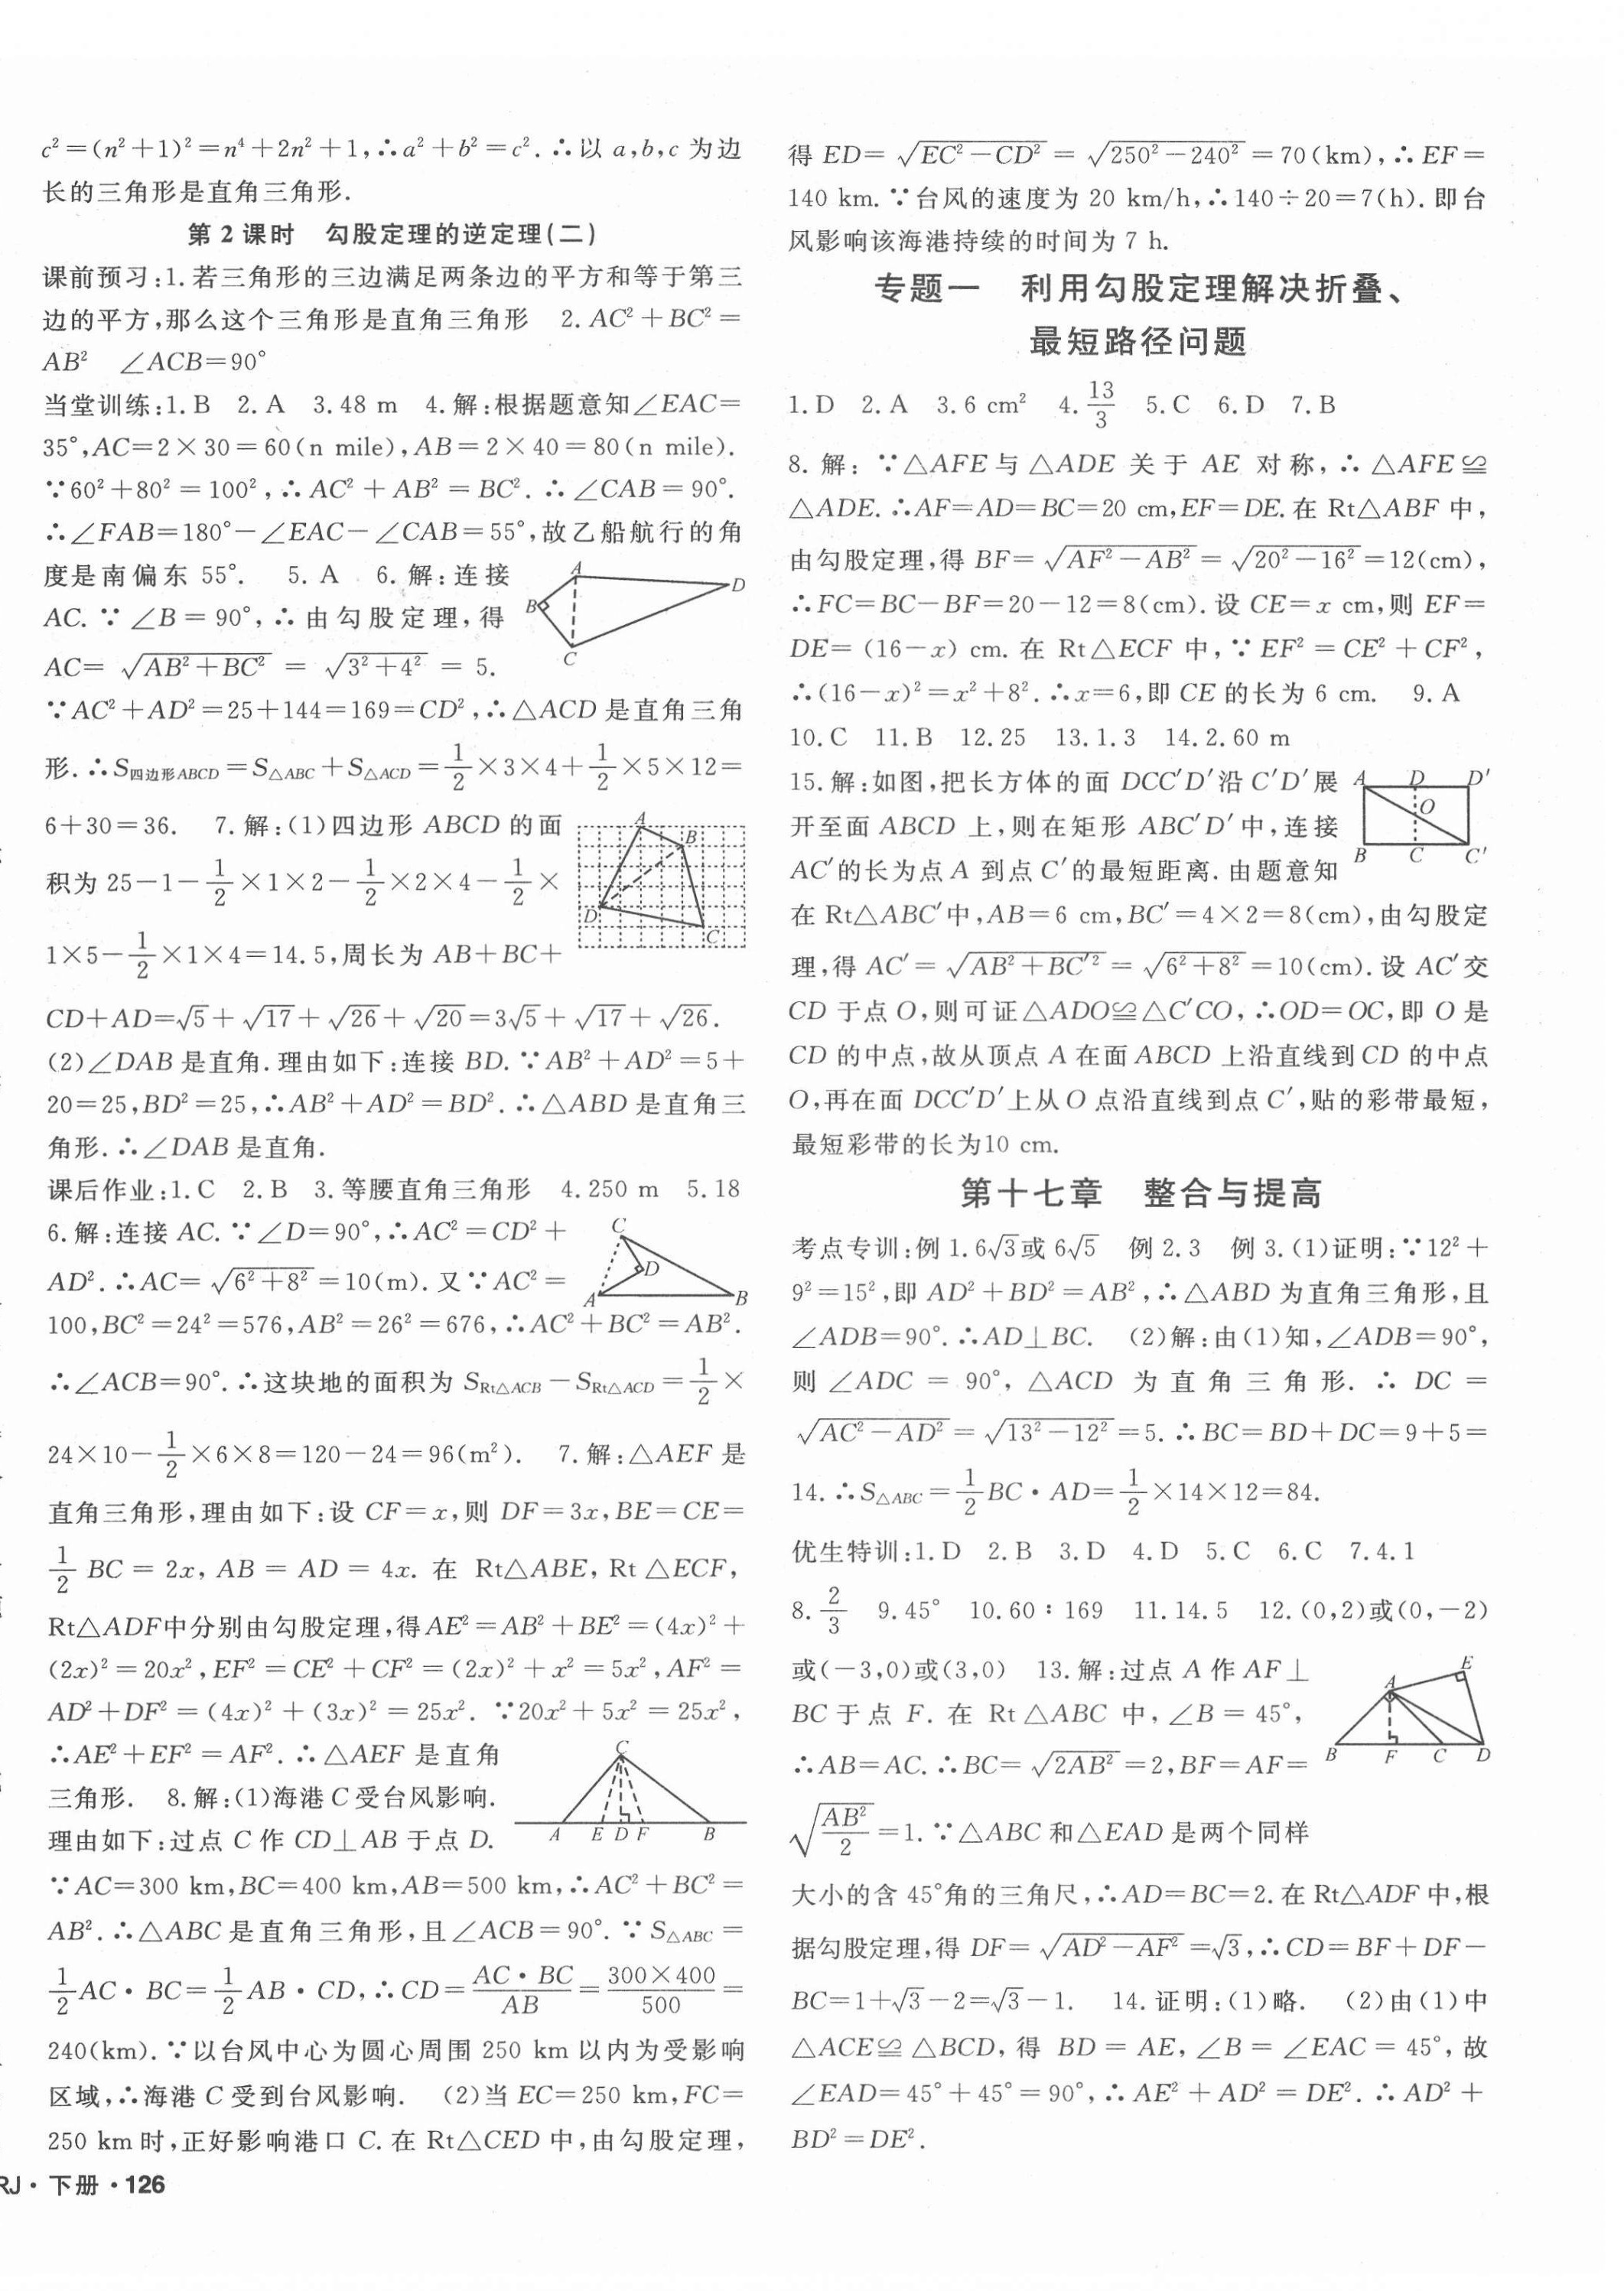 c²=(n²+1)²=n⁴+2n²+1,∴a²+b²=c².∴以 a,b,c 为边
长的三角形是直角三角形.
第 2 课时　勾股定理的逆定理(二)
课前预习:1.若三角形的三边满足两条边的平方和等于第三
边的平方,那么这个三角形是直角三角形　2. AC²+BC²=
AB²　∠ACB=90°
当堂训练:1. B　2. A　3.48 m　4.解:根据题意知∠EAC=
35°,AC=2×30=60(n mile),AB=2×40=80(n mile).
∵60²+80²=100²,∴AC²+AB²=BC².∴∠CAB=90°.
∴∠FAB=180°-∠EAC-∠CAB=55°,故乙船航行的角
度是南偏东 55°.　5. A　6.解:连接
AC.∵∠B=90°,∴由勾股定理,得
AC=√(AB²+BC²)=√(3²+4²)=5.
A
B
C
D
∵AC²+AD²=25+144=169=CD²,∴△ACD 是直角三角
形.∴S四边形ABCD=S△ABC+S△ACD=1/2×3×4+1/2×5×12=
6+30=36.　7.解:(1)四边形 ABCD 的面
积为 25-1-1/2×1×2-1/2×2×4-1/2×
1×5-1/2×1×4=14.5,周长为 AB+BC+
A
B
D
C
CD+AD=√5+√17+√26+√20=3√5+√17+√26.
(2)∠DAB 是直角.理由如下:连接 BD.∵AB²+AD²=5+
20=25,BD²=25,∴AB²+AD²=BD².∴△ABD 是直角三
角形.∴∠DAB 是直角.
课后作业:1. C　2. B　3.等腰直角三角形　4.250 m　5.18
6.解:连接 AC.∵∠D=90°,∴AC²=CD²+
AD².∴AC=√(6²+8²)=10(m).又∵AC²=
C
D
A
B
100,BC²=24²=576,AB²=26²=676,∴AC²+BC²=AB².
∴∠ACB=90°.∴这块地的面积为 SRt△ACB-SRt△ACD=1/2×
24×10-1/2×6×8=120-24=96(m²).　7.解:△AEF 是
直角三角形,理由如下:设 CF=x,则 DF=3x,BE=CE=
1/2 BC=2x,AB=AD=4x.在 Rt△ABE,Rt△ECF,
Rt△ADF中分别由勾股定理,得AE²=AB²+BE²=(4x)²+
(2x)²=20x²,EF²=CE²+CF²=(2x)²+x²=5x²,AF²=
AD²+DF²=(4x)²+(3x)²=25x².∵20x²+5x²=25x²,
∴AE²+EF²=AF².∴△AEF 是直角
三角形.　8.解:(1)海港 C 受台风影响.
理由如下:过点 C 作 CD⊥AB 于点 D.
C
A E D F B
∵AC=300 km,BC=400 km,AB=500 km,∴AC²+BC²=
AB².∴△ABC 是直角三角形,且∠ACB=90°.∵S△ABC=
1/2 AC·BC=1/2 AB·CD,∴CD=AC·BC/AB=300×400/500=
240(km).∵以台风中心为圆心周围 250 km 以内为受影响
区域,∴海港 C 受到台风影响.　(2)当 EC=250 km,FC=
250 km 时,正好影响港口 C.在 Rt△CED 中,由勾股定理,
RJ·下册·126
得 ED=√(EC²-CD²)=√(250²-240²)=70(km),∴EF=
140 km.∵台风的速度为 20 km/h,∴140÷20=7(h).即台
风影响该海港持续的时间为 7 h.
专题一　利用勾股定理解决折叠、
最短路径问题
1. D　2. A　3.6 cm²　4.13/3　5. C　6. D　7. B
8.解:∵△AFE 与△ADE 关于 AE 对称,∴△AFE≌
△ADE.∴AF=AD=BC=20 cm,EF=DE.在 Rt△ABF 中,
由勾股定理,得 BF=√(AF²-AB²)=√(20²-16²)=12(cm),
∴FC=BC-BF=20-12=8(cm).设 CE=x cm,则 EF=
DE=(16-x) cm.在 Rt△ECF 中,∵EF²=CE²+CF²,
∴(16-x)²=x²+8².∴x=6,即 CE 的长为 6 cm.　9. A
10. C　11. B　12.25　13.1.3　14.2.60 m
15.解:如图,把长方体的面 DCC′D′沿 C′D′展
开至面 ABCD 上,则在矩形 ABC′D′中,连接
AC′的长为点 A 到点 C′的最短距离.由题意知
A D D′
O
B C C′
在 Rt△ABC′中,AB=6 cm,BC′=4×2=8(cm),由勾股定
理,得 AC′=√(AB²+BC′²)=√(6²+8²)=10(cm).设 AC′交
CD 于点 O,则可证△ADO≌△C′CO,∴OD=OC,即 O 是
CD 的中点,故从顶点 A 在面 ABCD 上沿直线到 CD 的中点
O,再在面 DCC′D′上从 O 点沿直线到点 C′,贴的彩带最短,
最短彩带的长为10 cm.
第十七章　整合与提高
考点专训:例 1.6√3或 6√5　例 2.3　例 3.(1)证明:∵12²+
9²=15²,即 AD²+BD²=AB²,∴△ABD 为直角三角形,且
∠ADB=90°.∴AD⊥BC.　(2)解:由(1)知,∠ADB=90°,
则∠ADC=90°,△ACD 为直角三角形.∴DC=
√(AC²-AD²)=√(13²-12²)=5.∴BC=BD+DC=9+5=
14.∴S△ABC=1/2 BC·AD=1/2×14×12=84.
优生特训:1. D　2. B　3. D　4. D　5. C　6. C　7.4.1
8.2/3　9.45°　10.60∶169　11.14.5　12.(0,2)或(0,-2)
或(-3,0)或(3,0)　13.解:过点 A 作 AF⊥
BC 于点 F.在 Rt△ABC 中,∠B=45°,
∴AB=AC.∴BC=√(2AB²)=2,BF=AF=
√(AB²/2)=1.∵△ABC 和△EAD 是两个同样
E
A
B F C D
大小的含 45°角的三角尺,∴AD=BC=2.在 Rt△ADF 中,根
据勾股定理,得 DF=√(AD²-AF²)=√3,∴CD=BF+DF-
BC=1+√3-2=√3-1.　14.证明:(1)略.　(2)由(1)中
△ACE≌△BCD,得 BD=AE,∠B=∠EAC=45°,故
∠EAD=45°+45°=90°,∴AE²+AD²=DE².∴AD²+
BD²=DE².